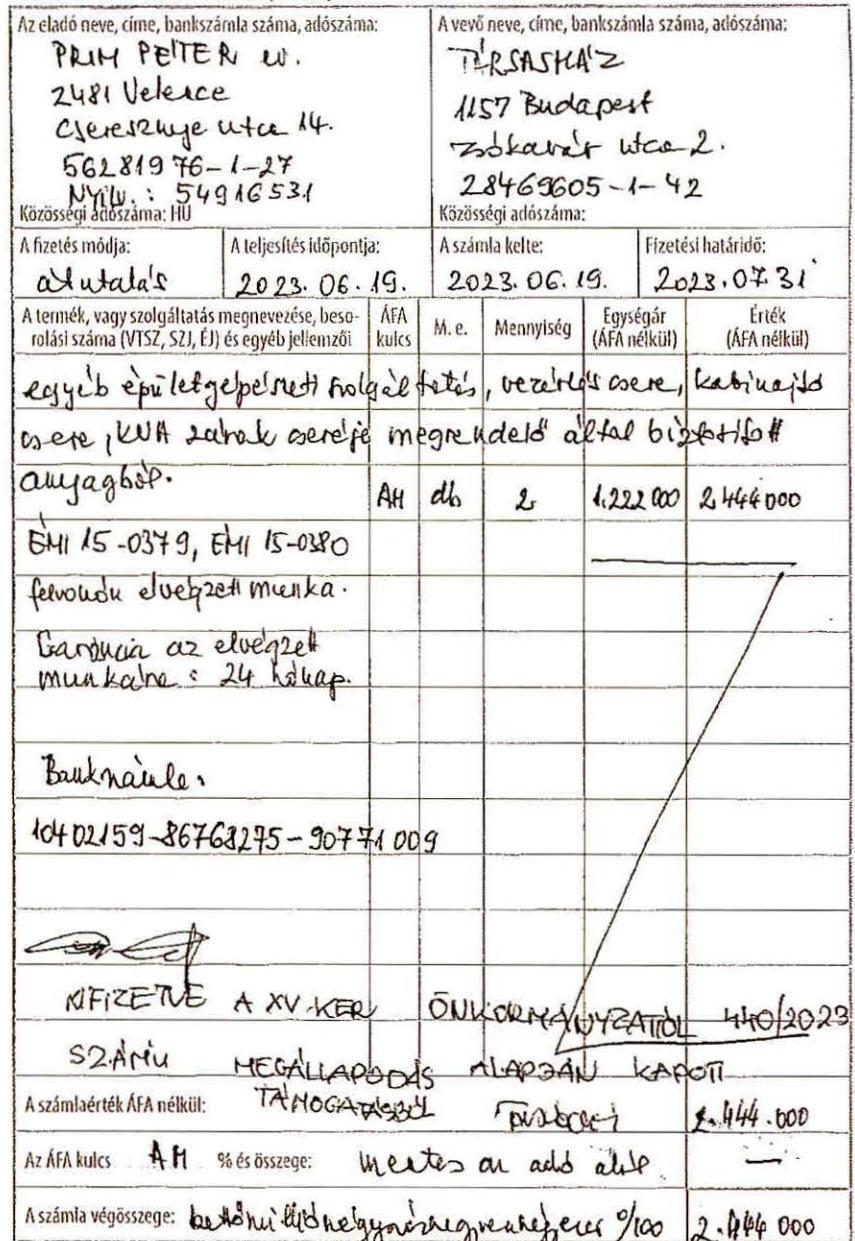 Az eladó neve, címe, bankszámla száma, adószáma:
PRIM PÉTER ev.
2481 Velence
Cseresznye utca 14.
56281976-1-27
NYILV.: 54916531
Közösségi adószáma: HU
A vevő neve, címe, bankszámla száma, adószáma:
TÁRSASHÁZ
1157 Budapest
Zsókavár utca 2.
28469605-1-42
Közösségi adószáma:
A fizetés módja: A teljesítés időpontja: A számla kelte: Fizetési határidő:
átutalás 2023.06.19. 2023.06.19. 2023.07.31
A termék, vagy szolgáltatás megnevezése, beso-
rolási száma (VTSZ, SZJ, ÉJ) és egyéb jellemzői
ÁFA kulcs M. e. Mennyiség Egységár (ÁFA nélkül) Érték (ÁFA nélkül)
egyéb épületgépészeti szolgáltatás, vezérlés csere, kabinajtó
csere, KNA zárak cseréje megrendelő által biztosított
anyagból. AM db 2 1.222 000 2 444 000
ÉMI 15-0379, ÉMI 15-0380
felvonón elvégzett munka.
Garancia az elvégzett
munkára: 24 hónap.
Bankszámla:
10402159-86768275-90771009
KIFIZETVE A XV. KER ÖNKORMÁNYZATTÓL 440/2023
SZÁMÚ MEGÁLLAPODÁS ALAPJÁN KAPOTT
TÁMOGATÁSBÓL
A számlaérték ÁFA nélkül: 2.444.000
Az ÁFA kulcs AM % és összege: mentes az adó alól —
A számla végösszege: kettőmilliónégyszáznegyvennégyezer 0/100 2.444 000